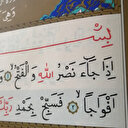 بِسْمِ
إِذَا جَاءَ نَصْرُ اللهِ وَالْفَتْحُ
أَفْوَاجًا فَسَبِّحْ بِحَمْدِ رَبِّكَ